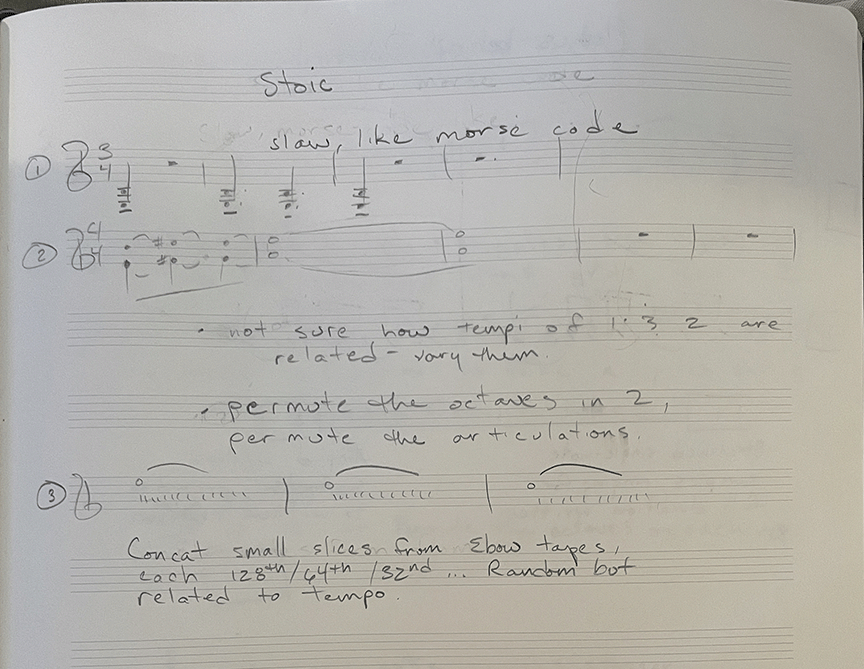 Stoic
slow, like morse code
① 3
4
② 4
4
• not sure how tempi of 1 : 3 2 are
related - vary them.
• permute the octaves in 2,
permute the articulations.
③
Concat small slices from Ebow tapes,
each 128th/64th/32nd ... Random but
related to tempo.